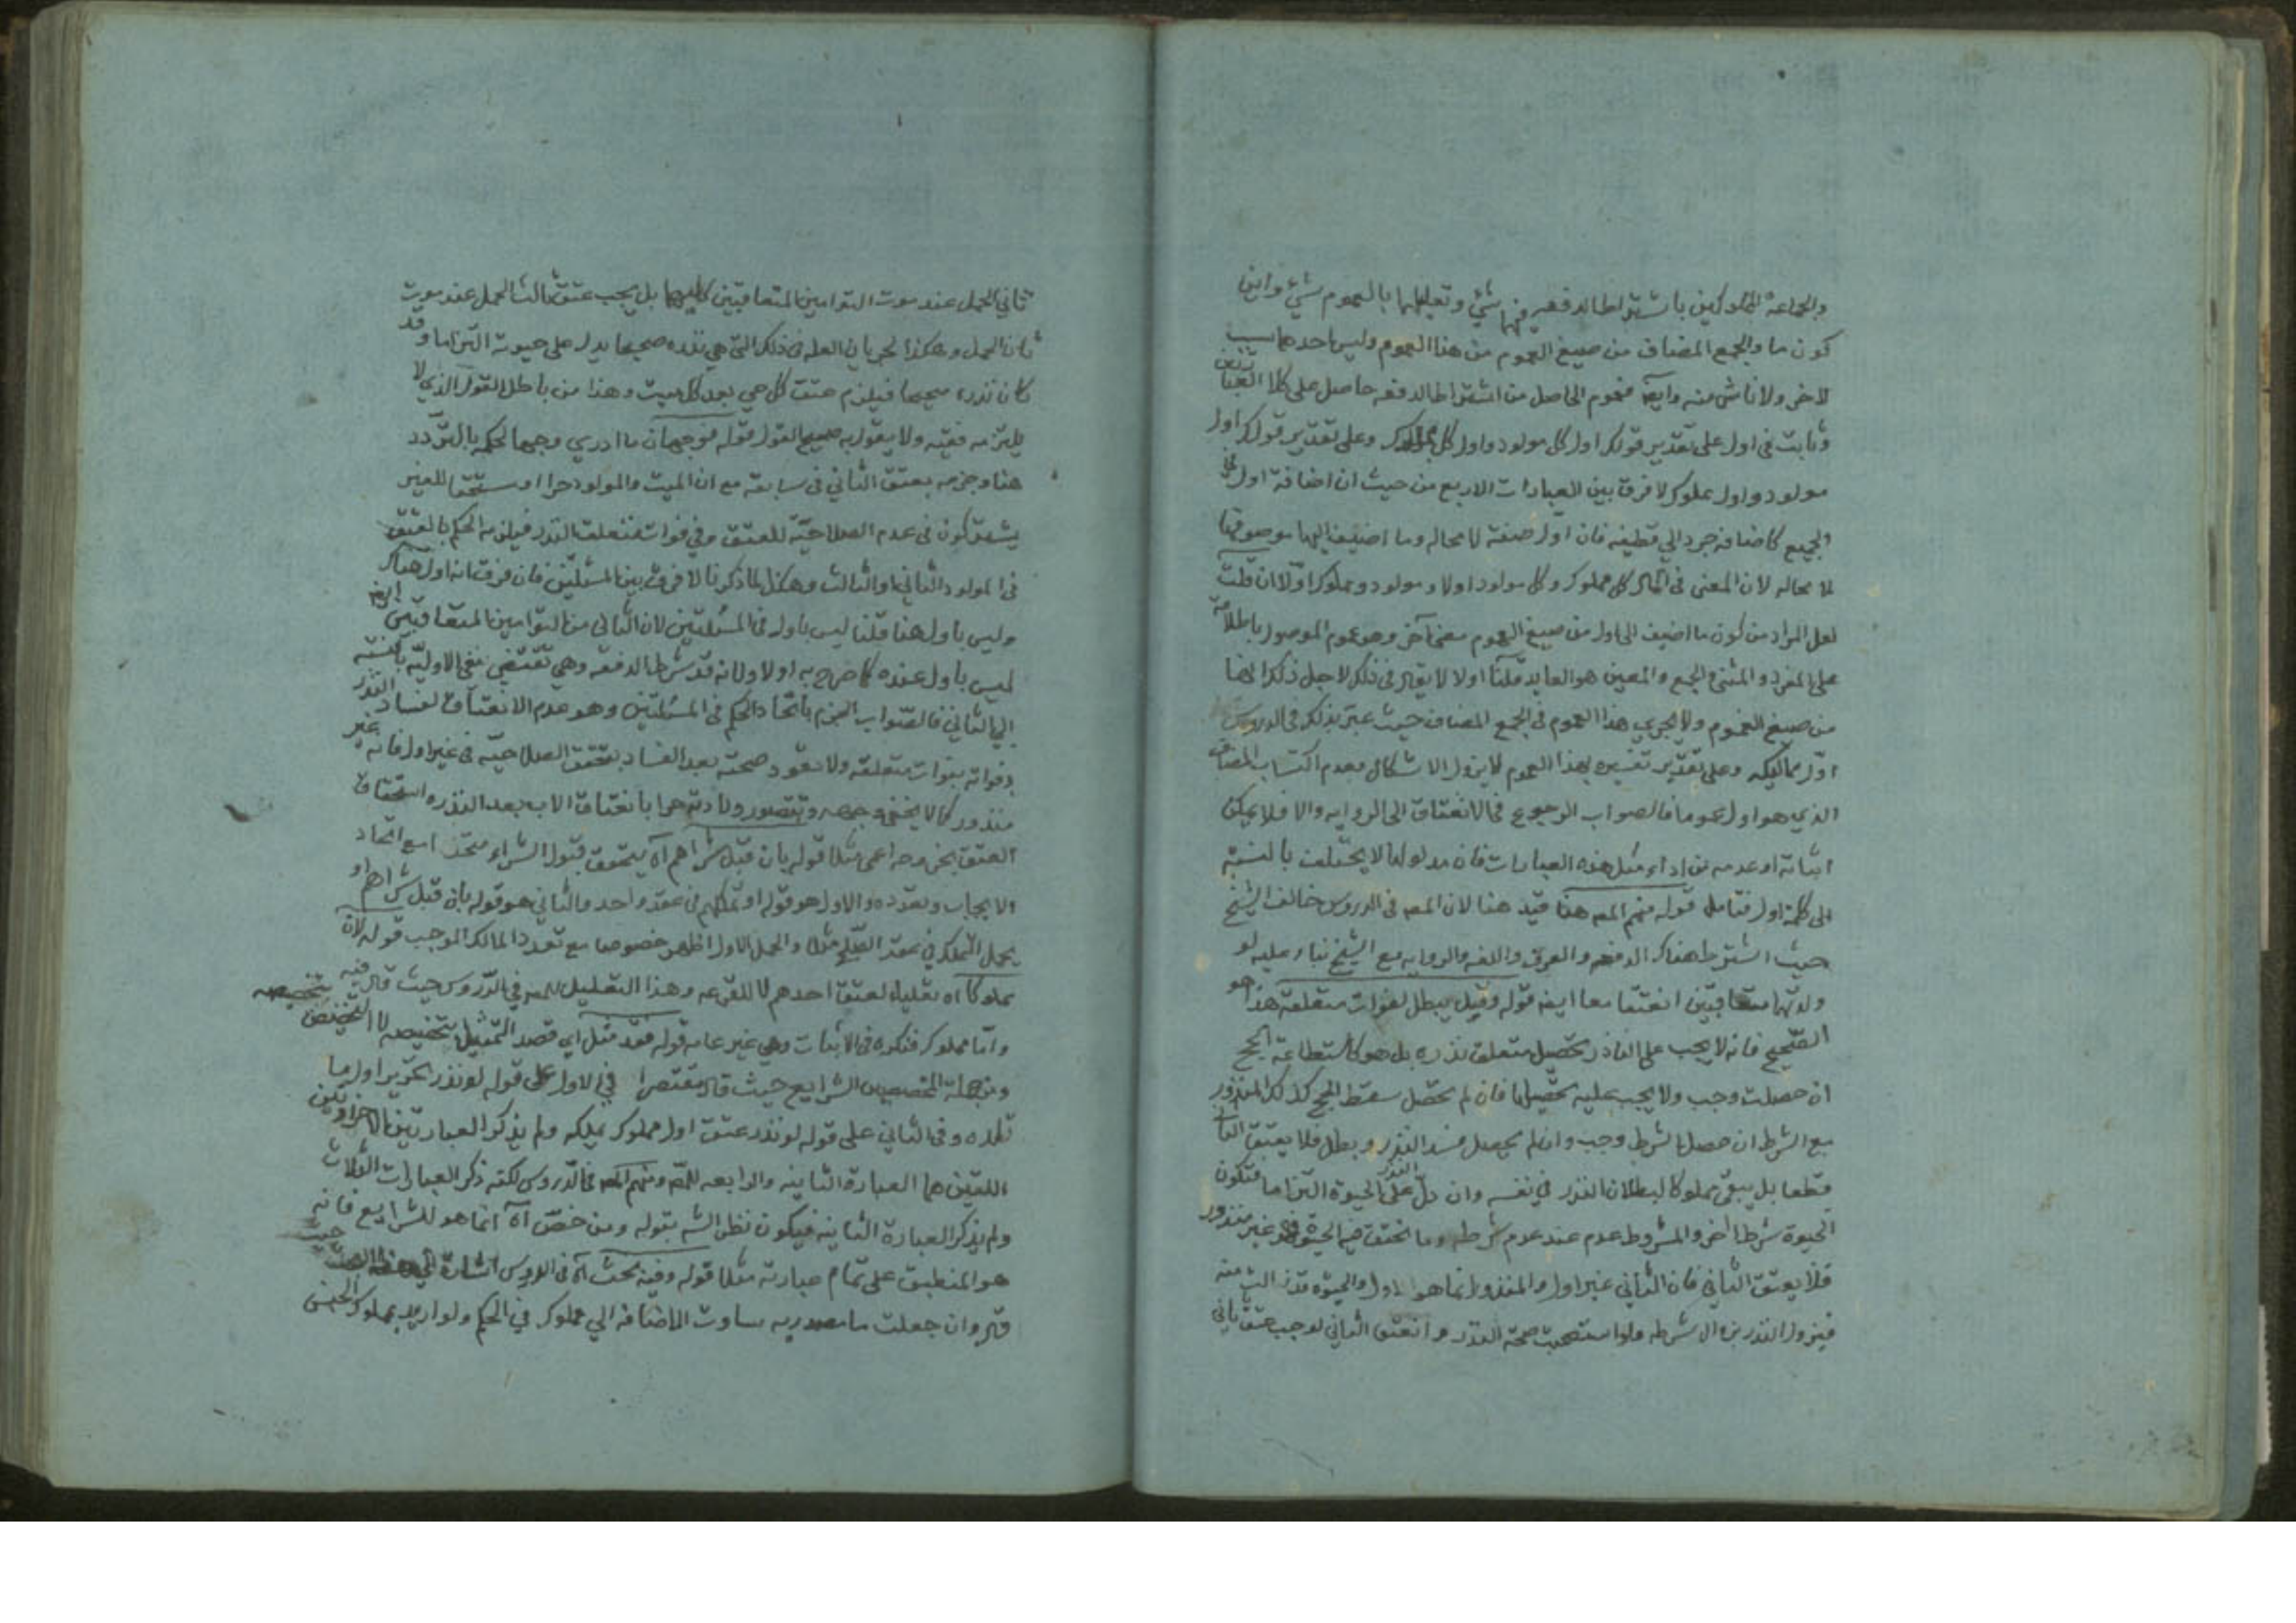 والجماعة المملوكين باشتراط الدفعه فيهما شئ وتعليلهما بالعموم شئ وايضا
كون ما والجمع المضاف من صيغ العموم من هذا العموم وليس احدهما سبب
لاخر ولا ناش منه وايضا فعموم الحاصل من اشتراط الدفعه حاصل على كلا
وثابت في اول على تقدير قولك اول كل مولود واول كل مملوك وعلى تقدير قولك اول
مولود واول مملوك لا فرق بين العبارات الاربع من حيث ان اضافة اول في
الجميع كاضافة جرد الى قطيفه فان اول صفة لا محاله وما اضيف اليها موصوفها
لا محاله لان المعنى في المآل كل مملوك وكل مولود اولا ومولود ومملوك اولا ان قلت
لعل المراد من كون ما اضيف الى اول من صيغ العموم معنى آخر وهو عموم الموصول باطلاقه
على المفرد والمثنى والجمع والمعين هو العايد قلنا اولا لا يقال في ذلك لاجل ذلك انها
من صيغ العموم ولا يجرى هذا العموم في الجمع المضاف حيث عبر بذلك في الدروس
اول مماليكه وعلى تقدير تفسيره بهذا العموم لا يزول الاشكال بعدم اكتساب المضاف
الذي هو اول عموما فالصواب الرجوع في الانعتاق الى الروايه والا فلا يمكن
اثباته او عدمه من اداء مثل هذه العبارات فان مدلولها لا يختلف بالنسبة
الى كلمة اول فتامل قوله منهم المص هنا قيد هنا لان المص في الدروس خالف الشيخ
حيث اشترط هناك الدفعه والعرف واللغه والروايه مع الشيخ بناء عليه لو
ولدتهما متعاقبين انعتقا معا ايضا قوله وقيل يبطل لفوات متعلقه هذا هو
الصحيح فانه لا يجب على الناذر تحصيل متعلق نذره بل هو كاستطاعة الحج
ان حصلت وجب ولا يجب عليه تحصيلها فان لم تحصل سقط الحج كذلك المنذور
مع الشرط ان حصل الشرط وجب وان لم يحصل فسد النذر وبطل فلا يعتق الثاني
قطعا بل يبقى مملوكا لبطلان النذر في نفسه وان دل النذر على الحيوة التزاما فتكون
الحيوة شرطا آخر والمشروط عدم عند عدم شرطه وما تحقق فيه الحيوة غير منذور
فلا يعتق الثاني فان الثاني غير اول والمنذور انما هو الاول والحيوة قد زالت منه
فيزول النذر بزوال شرطه ولو استصحبت صحة النذر وانعتق الثاني لوجب عتق ثاني
ثاني الحمل عند موت التوامين المتعاقبين كليهما بل يجب عتق ثالث الحمل عند موت
ثان الحمل وهكذا لجريان العله في ذلك التي هي نذره صحيحا يدل على حيوته التزاما وقد
كان نذره صحيحا فيلزم عتق كل حي بعد كل ميت وهذا من باطل القول الذي لا
يلتزمه فقيه ولا يقول به صحيح القول قوله فوجهان ما ادري وجها لحكمه بالتردد
هنا وجزمه بعتق الثاني في سابقه مع ان الميت والمولود حرا او مستحقا للغير
يشتركون في عدم الصلاحية للعتق وفي فوات متعلق النذر فيلزمه الحكم بالعتق
في المولود الثاني او الثالث وهكذا لما ذكرنا لا فرق بين المسئلتين فان فرق انه اول هناك
وليس باول هنا قلنا ليس باول في المسئلتين لان الثاني من التوامين المتعاقبين ايضا
ليس باول عنده كما صرح به اولا ولانه قد شرط الدفعه وهي تقتضي نفي الاولية بالنسبة
الى الثاني فالصواب الجزم باتحاد الحكم في المسئلتين وهو عدم الانعتاق لفساد النذر
وفواته بفوات متعلقه ولا تعود صحته بعد الفساد بتحقق الصلاحيه في غير اول فانه غير
منذور كما لا يخفى وجهه وتتصور ولادته حرا بانعتاق الاب بعد النذر واستحقاق
العتق بخروجه اعمى مثلا قوله بان قبل شراهم آه يتحقق قبول الشراء متحدا مع اتحاد
الايجاب وتعدده والاول هو قوله او تملكهم في عقد واحد والثاني هو قوله بان قبل شراهم او
يحمل التملك في عقد الصلح مثلا والحمل الاول اظهر خصوصا مع تعدد المالك الموجب قوله لان
مملوكا آه تعليل لعتق احدهم لا للقرعه وهذا التعليل للمص في الدروس حيث قال فيه
واما مملوك فنكره في الاثبات وهي غير عامه قوله فقد مثل اي قصد التمثيل تخصيصه لا التخصيص تخصيصه
ومن جملة المخصصين الشرايع حيث قال مقتصرا في الاول على قوله لو نذر تحرير اول ما
تلده وفي الثاني على قوله لو نذر عتق اول مملوك يملكه ولم يذكر العبارتين الاخراوتين
اللتين هما العبارة الثانيه والرابعه للمص ومنهم المص في الدروس لكنه ذكر العبارات الثلاث
ولم يذكر العبارة الثانيه فيكون نظر الشه بقوله ومن خص آه انما هو للشرايع فانه
هو المنطبق على تمام عبارته مثلا قوله وفيه بحث آه في الدروس اشارة الى هذا البحث حيث
قال وان جعلت ما مصدريه ساوت الاضافه الى مملوك في الحكم ولو اريد بمملوك الجنس